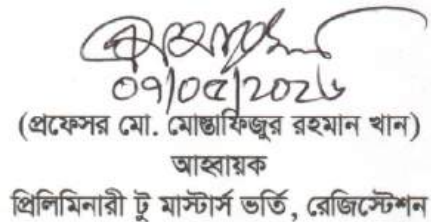 ০৭/০৫/২০২৬
(প্রফেসর মো. মোস্তাফিজুর রহমান খান)
আহ্বায়ক
প্রিলিমিনারী টু মাস্টার্স ভর্তি, রেজিস্টেশন